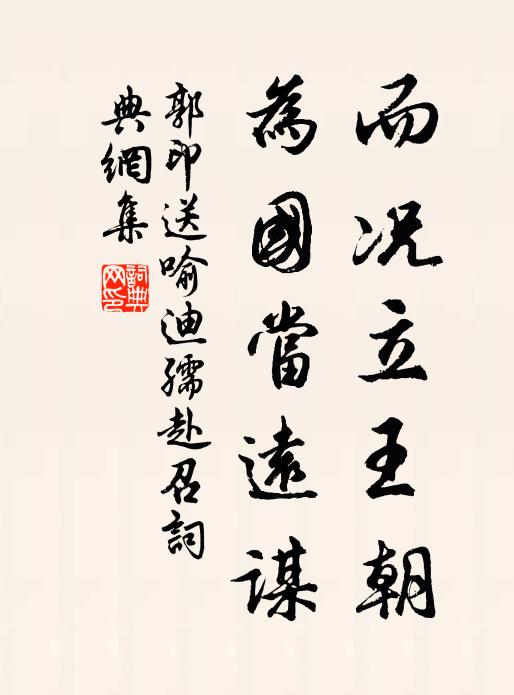 而况立王朝
為國當遠謀
郭印送喻迪孺赴召詞
典網集
詞典網印